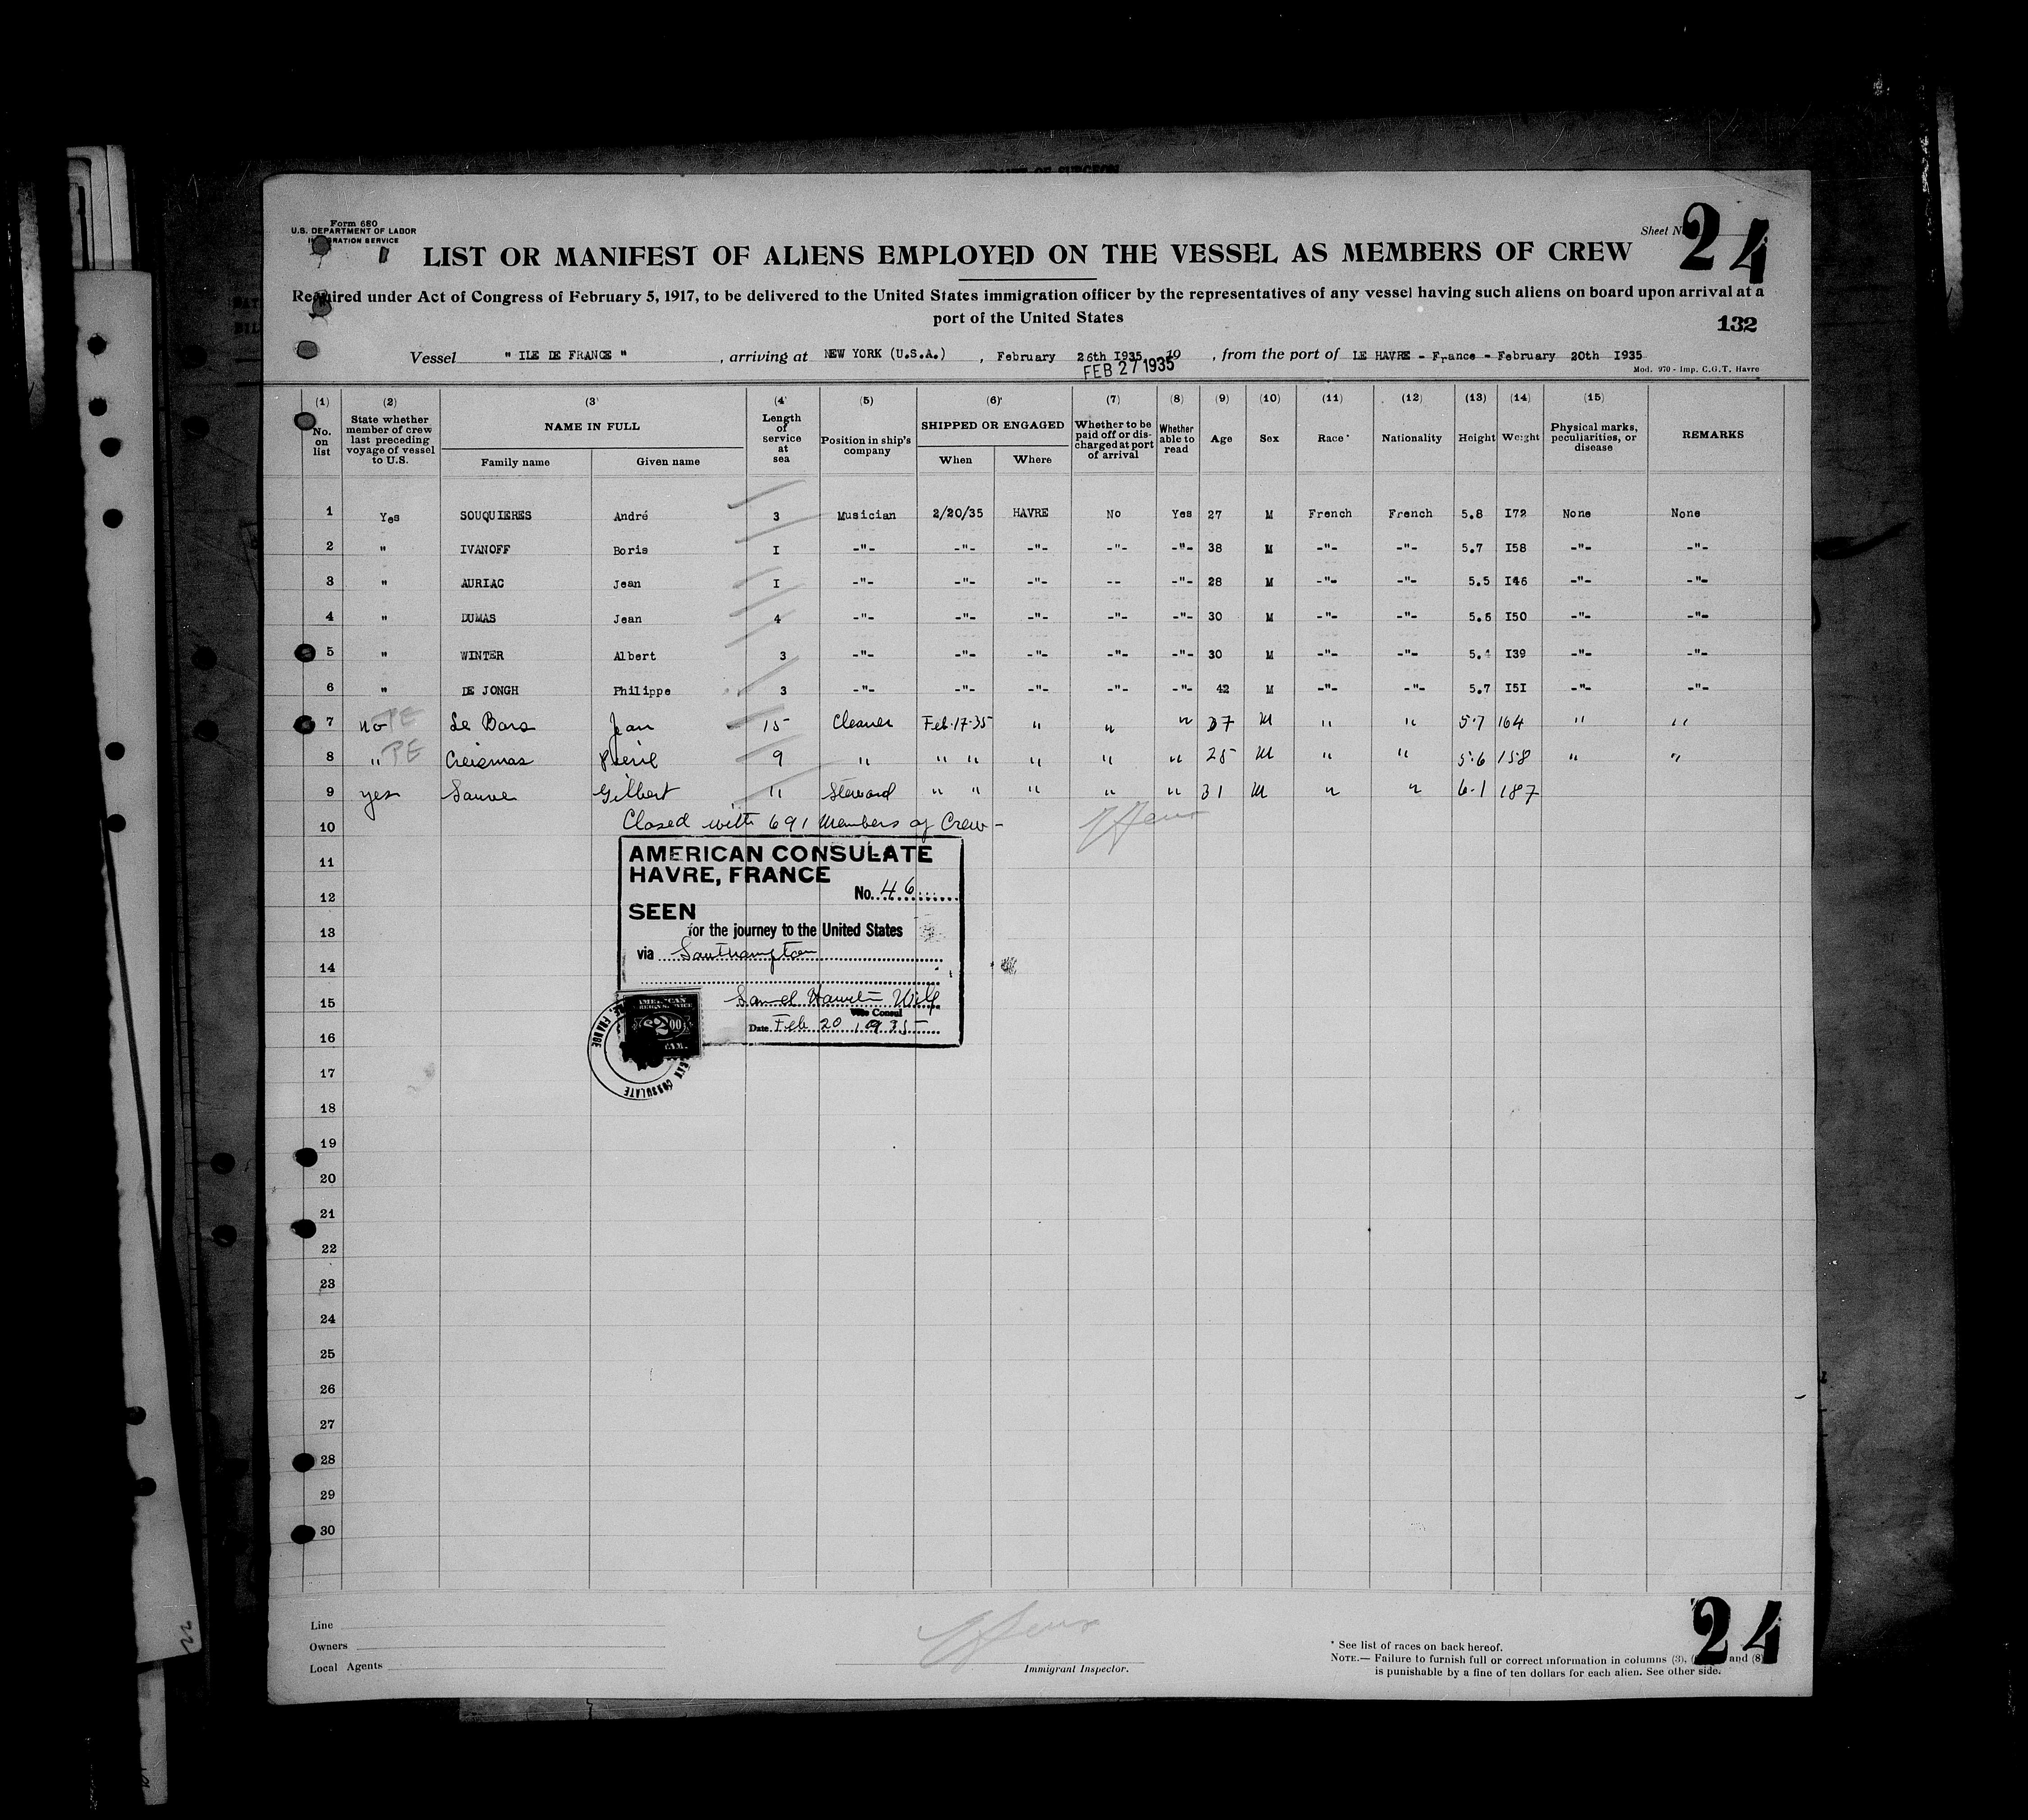 Form 680
U.S. DEPARTMENT OF LABOR
IMMIGRATION SERVICE
Sheet No. 24
LIST OR MANIFEST OF ALIENS EMPLOYED ON THE VESSEL AS MEMBERS OF CREW
Required under Act of Congress of February 5, 1917, to be delivered to the United States immigration officer by the representatives of any vessel having such aliens on board upon arrival at a
port of the United States
132
Vessel " ILE DE FRANCE " , arriving at NEW YORK (U.S.A.) , February 26th 1935 19 , from the port of LE HAVRE - France - February 20th 1935
FEB 27 1935
Mod. 970 - Imp. C.G.T. Havre
(1) No. on list
(2) State whether member of crew last preceding voyage of vessel to U.S.
(3) NAME IN FULL
Family name
Given name
(4) Length of service at sea
(5) Position in ship's company
(6) SHIPPED OR ENGAGED
When
Where
(7) Whether to be paid off or discharged at port of arrival
(8) Whether able to read
(9) Age
(10) Sex
(11) Race*
(12) Nationality
(13) Height
(14) Weight
(15) Physical marks, peculiarities, or disease
REMARKS
1 Yes SOUQUIERES André 3 Musician 2/20/35 HAVRE No Yes 27 M French French 5.8 I72 None None
2 " IVANOFF Boris I -"- -"- -"- -"- -"- 38 M -"- -"- 5.7 I58 -"- -"-
3 " AURIAC Jean I -"- -"- -"- -- -"- 28 M -"- -"- 5.5 I46 -"- -"-
4 " DUMAS Jean 4 -"- -"- -"- -"- -"- 30 M -"- -"- 5.6 I50 -"- -"-
5 " WINTER Albert 3 -"- -"- -"- -"- -"- 30 M -"- -"- 5.4 I39 -"- -"-
6 " DE JONGH Philippe 3 -"- -"- -"- -"- -"- 42 M -"- -"- 5.7 I5I -"- -"-
7 no PE Le Bars Jean 15 Cleaner Feb-17-35 " " " 37 M " " 5.7 164 " "
8 " PE 9 " " " " " " 25 M " " 5.6 158 " "
9 yes Sauve Gilbert " Steward " " " " " 31 M " " 6.1 187
10 Closed with 691 Members of Crew -
11
12
13
14
15
16
17
18
19
20
21
22
23
24
25
26
27
28
29
30
AMERICAN CONSULATE
HAVRE, FRANCE
No. 46
SEEN
for the journey to the United States
via Southampton
Vice Consul
Date Feb 20 1935
AMERICAN
$2.00
CONSULATE
Line
Owners
Local Agents
Immigrant Inspector.
* See list of races on back hereof.
NOTE.— Failure to furnish full or correct information in columns (3), and (8)
is punishable by a fine of ten dollars for each alien. See other side.
24